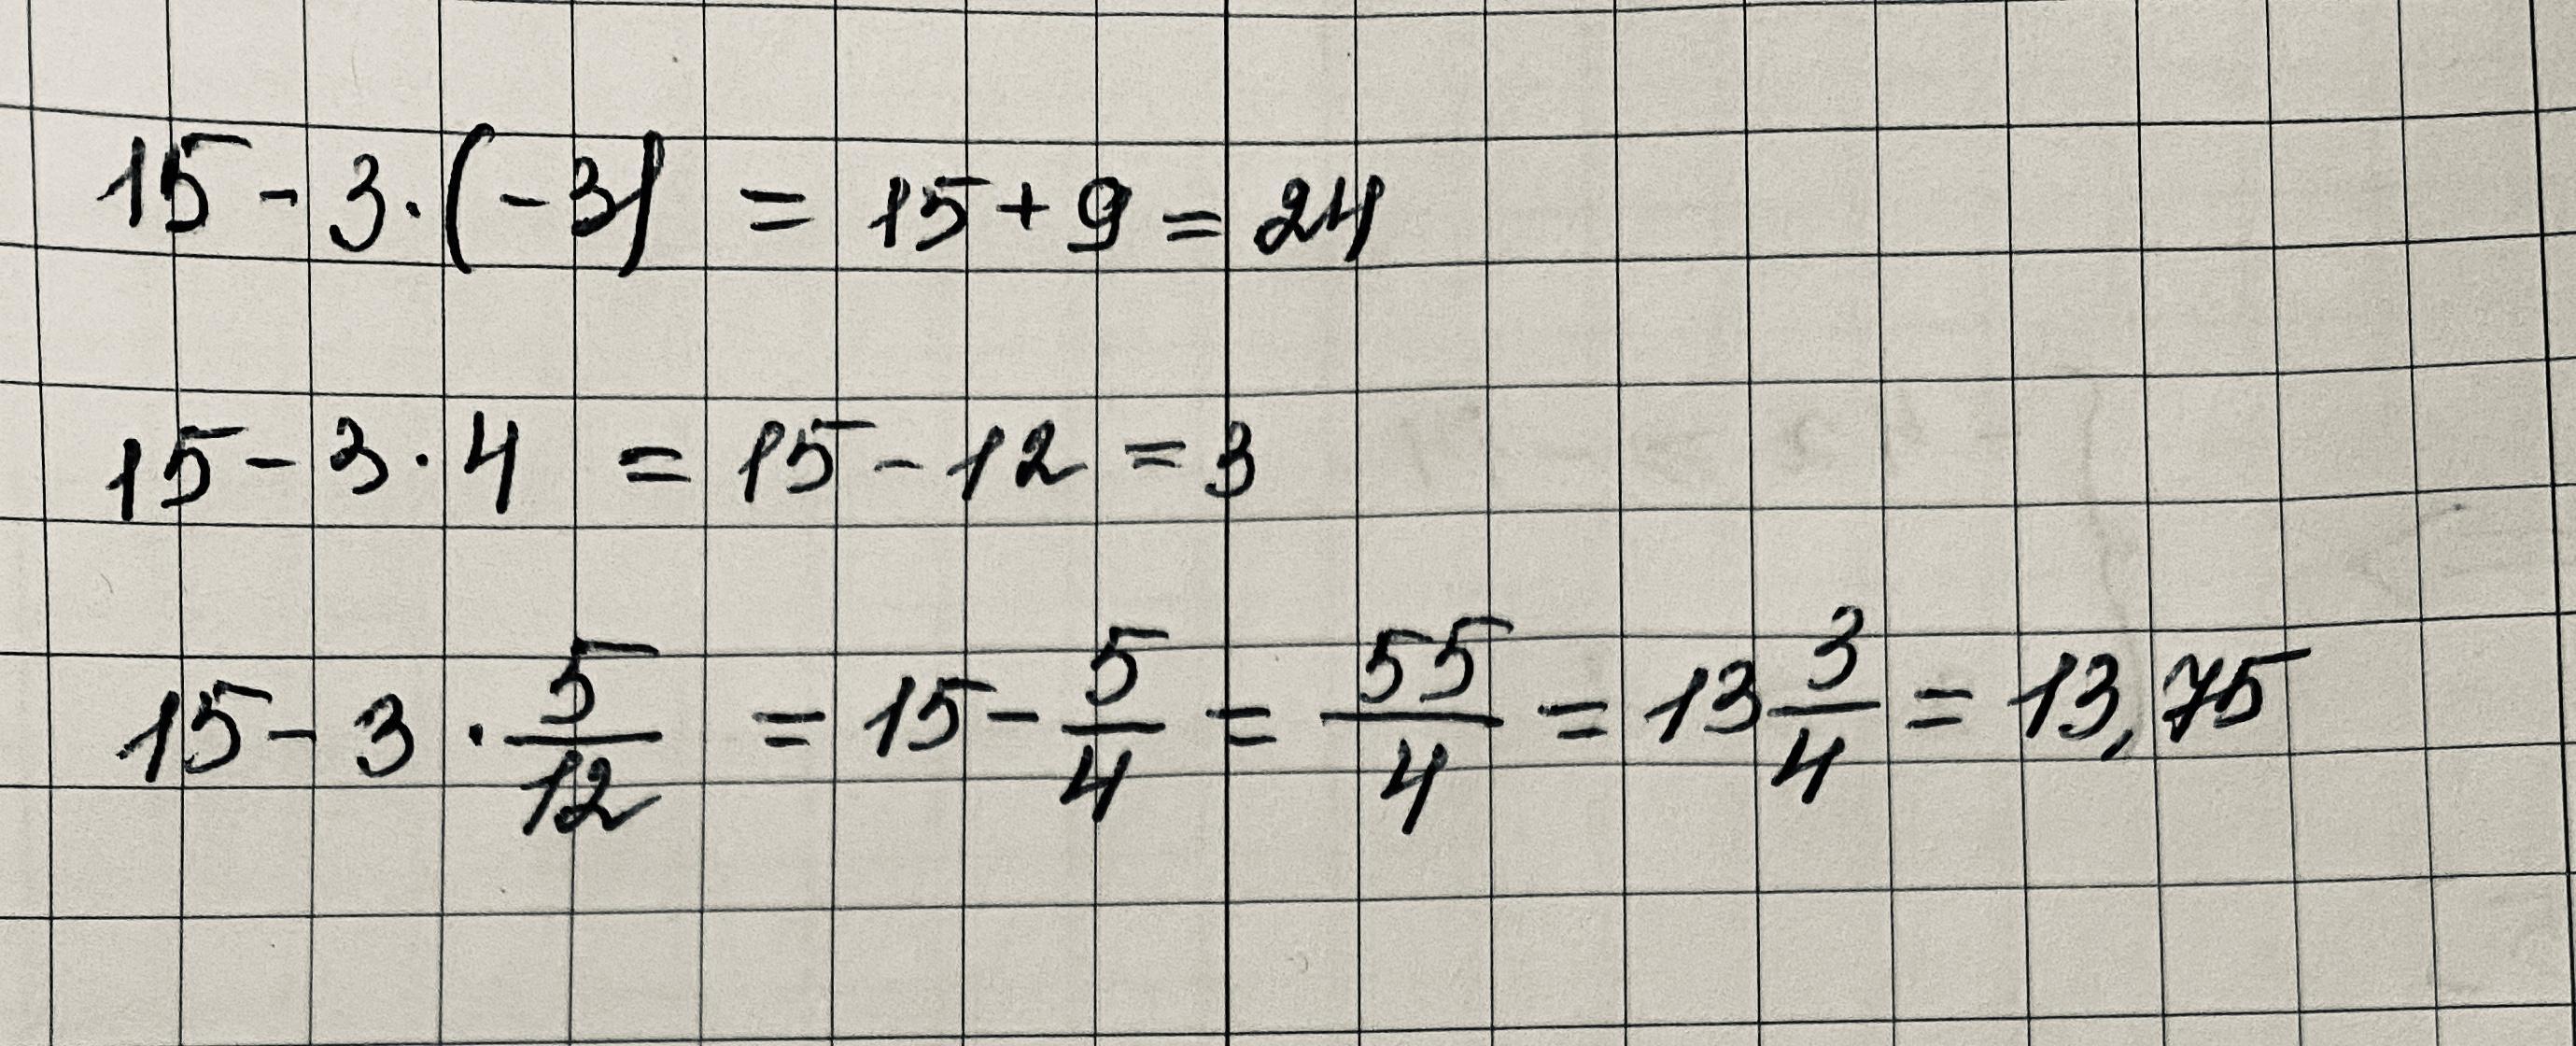 15 - 3 · (-3) = 15 + 9 = 24
15 - 3 · 4 = 15 - 12 = 3
15 - 3 · 5/12 = 15 - 5/4 = 55/4 = 13 3/4 = 13,75